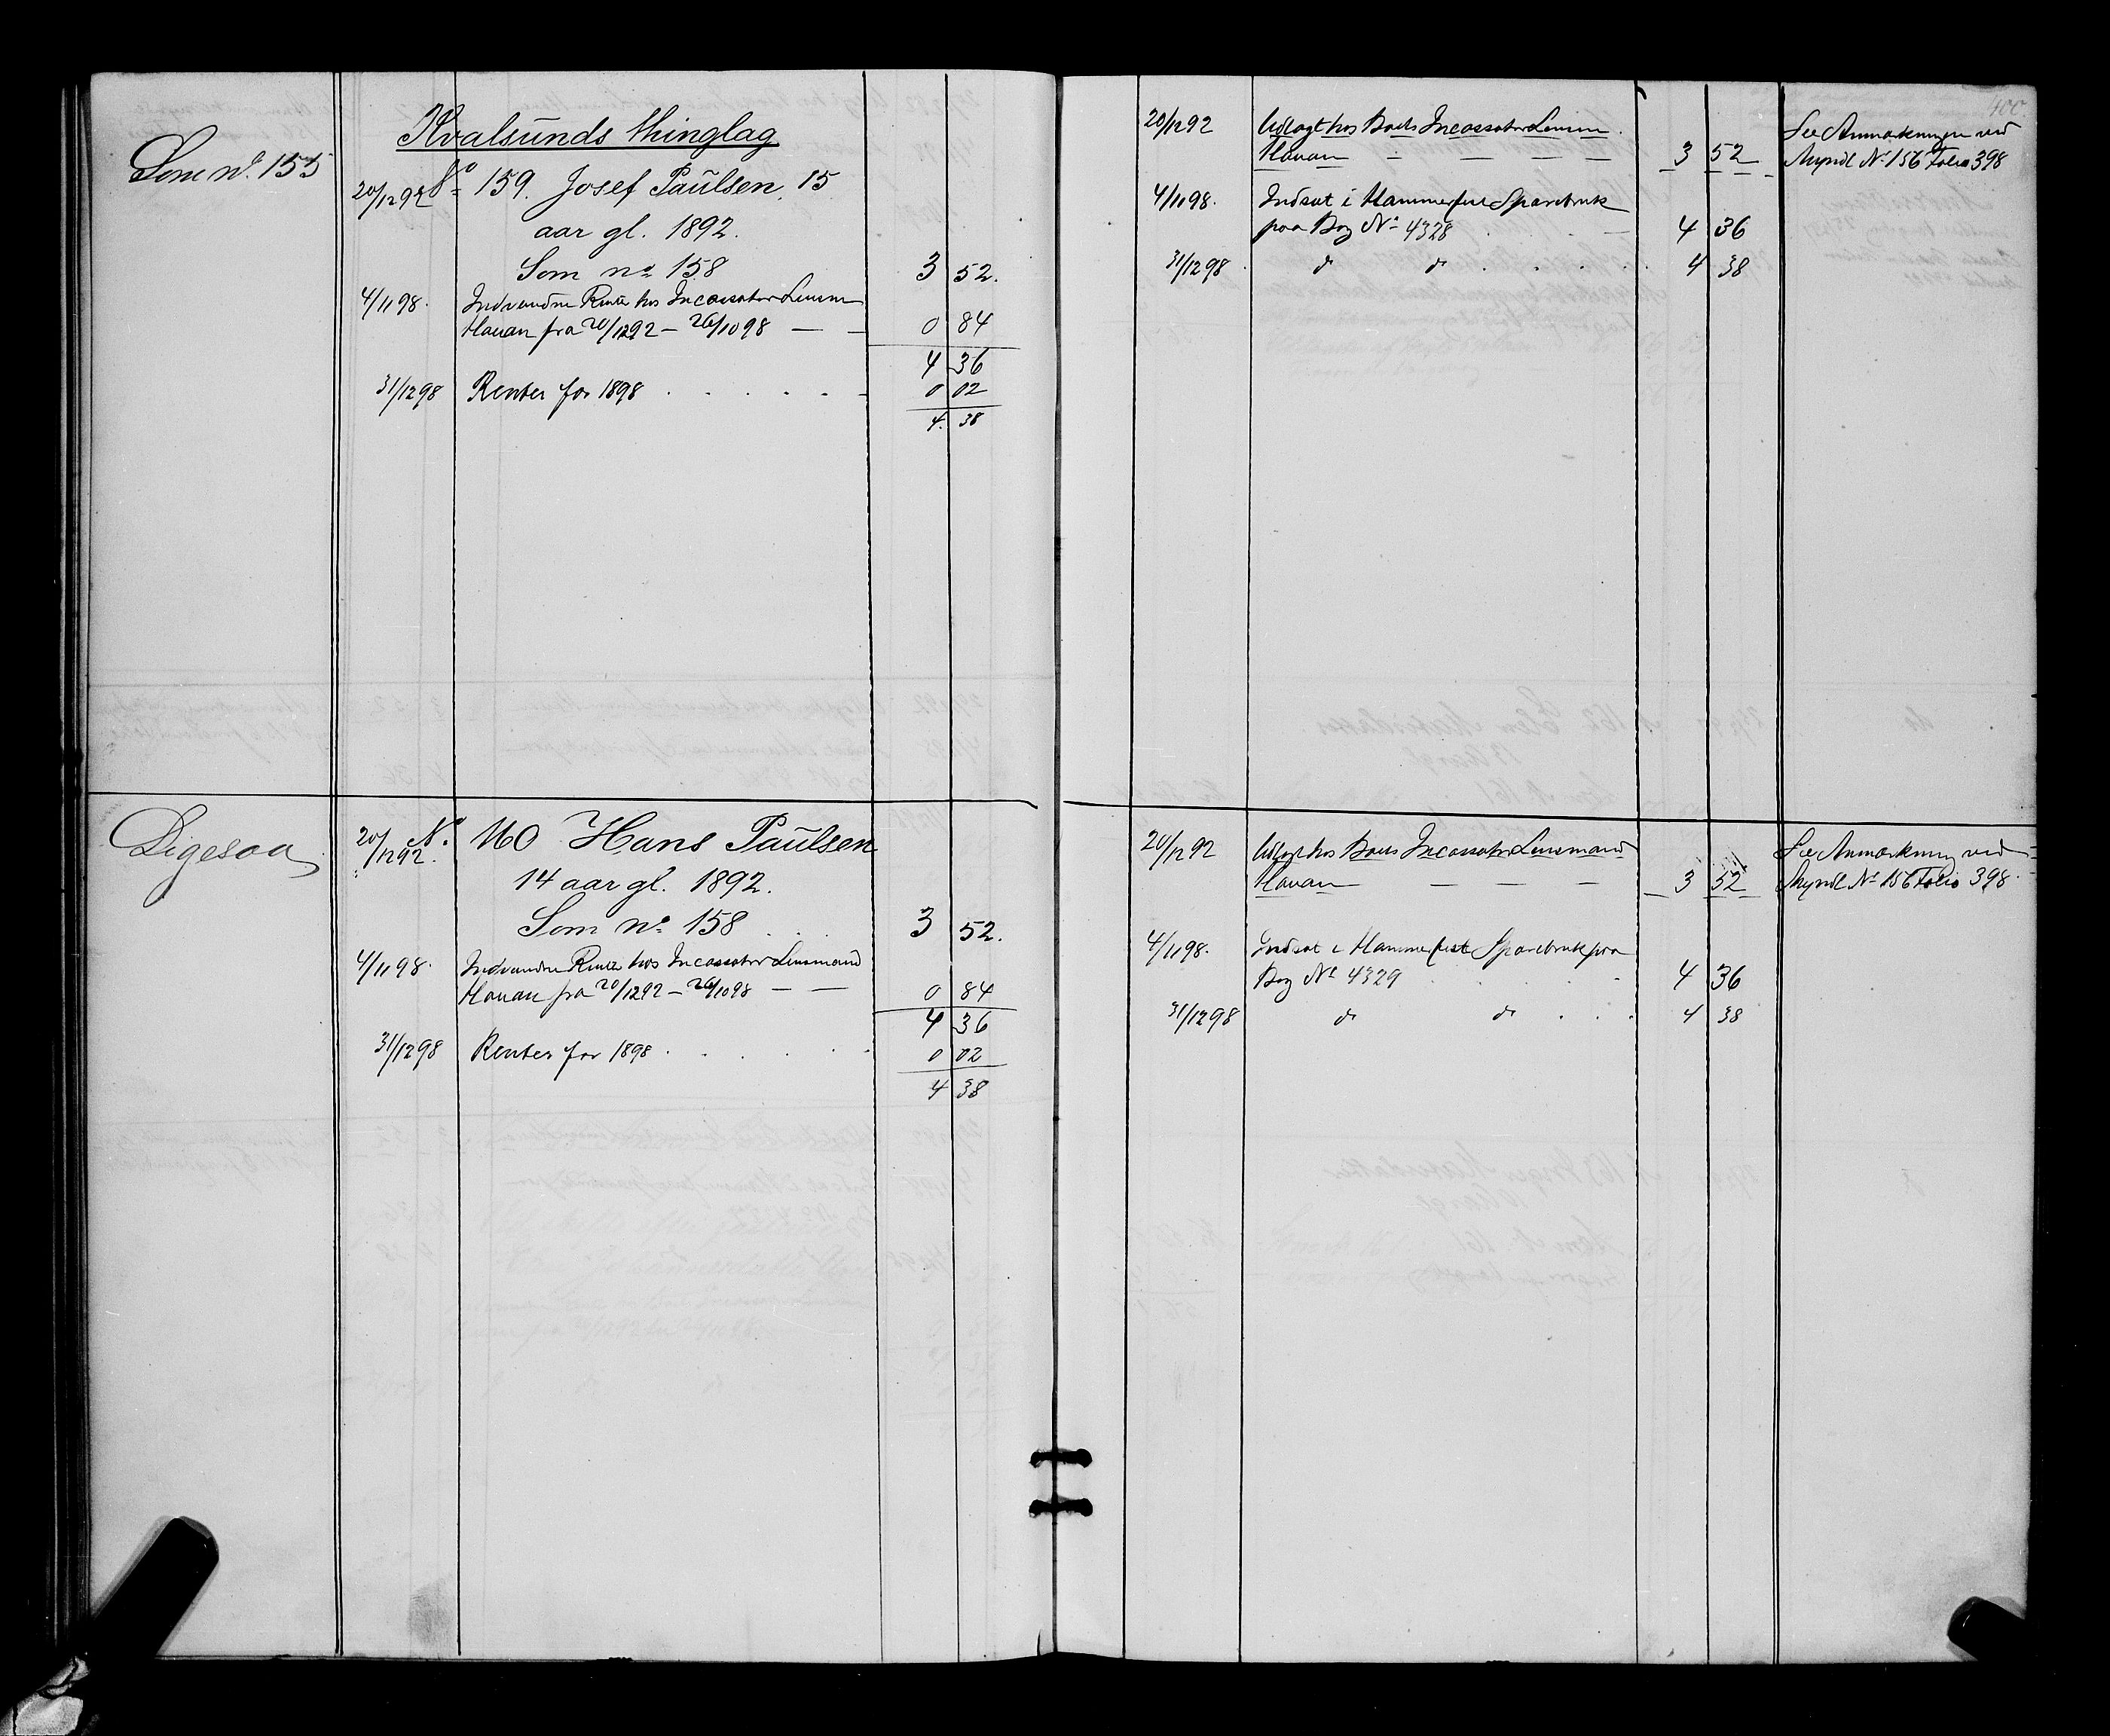 Kvalsunds thinglag
Som no. 155
20/12 92 No 159. Josef Paulsen, 15
aar gl. 1892.
Som no 158 3 52.
4/11 98. Indvundne Renter hos Incassator Lensm
Hauan fra 20/12 92 — 26/10 98 — — 0 84
4 36
31/12 98 Renter for 1898 . . . . . 0 02
4. 38
Ligesaa
20/12 92. No. 160 Hans Paulsen
14 aar gl. 1892.
Som no. 158 . . 3 52.
4/11 98. Indvundne Renter hos Incassator Lensmand
Hauan fra 20/12 92 — 26/10 98 — — 0 84
4 36
31/12 98 Renter for 1898 . . . . . 0 02
4 38
400
20/12 92 Udlagt hos Boets Incassator Lensm
Hauan — — — — 3 52
See Anmærkningen ved
Myndl No 156 Folio 398
4/11 98. Indsat i Hammerfest Sparebank
paa Bog No 4328 . . . — 4 36
31/12 98 do do . . . . . 4 38
20/12 92 Udlagt hos Boets Incassator Lensmand
Hauan — — — 3 52
See Anmærkning ved
Myndl No 156 Folio 398.
4/11 98. Indsat i Hammerfest Sparebank paa
Bog No 4329 . . . . 4 36
31/12 98 do do . . . 4 38